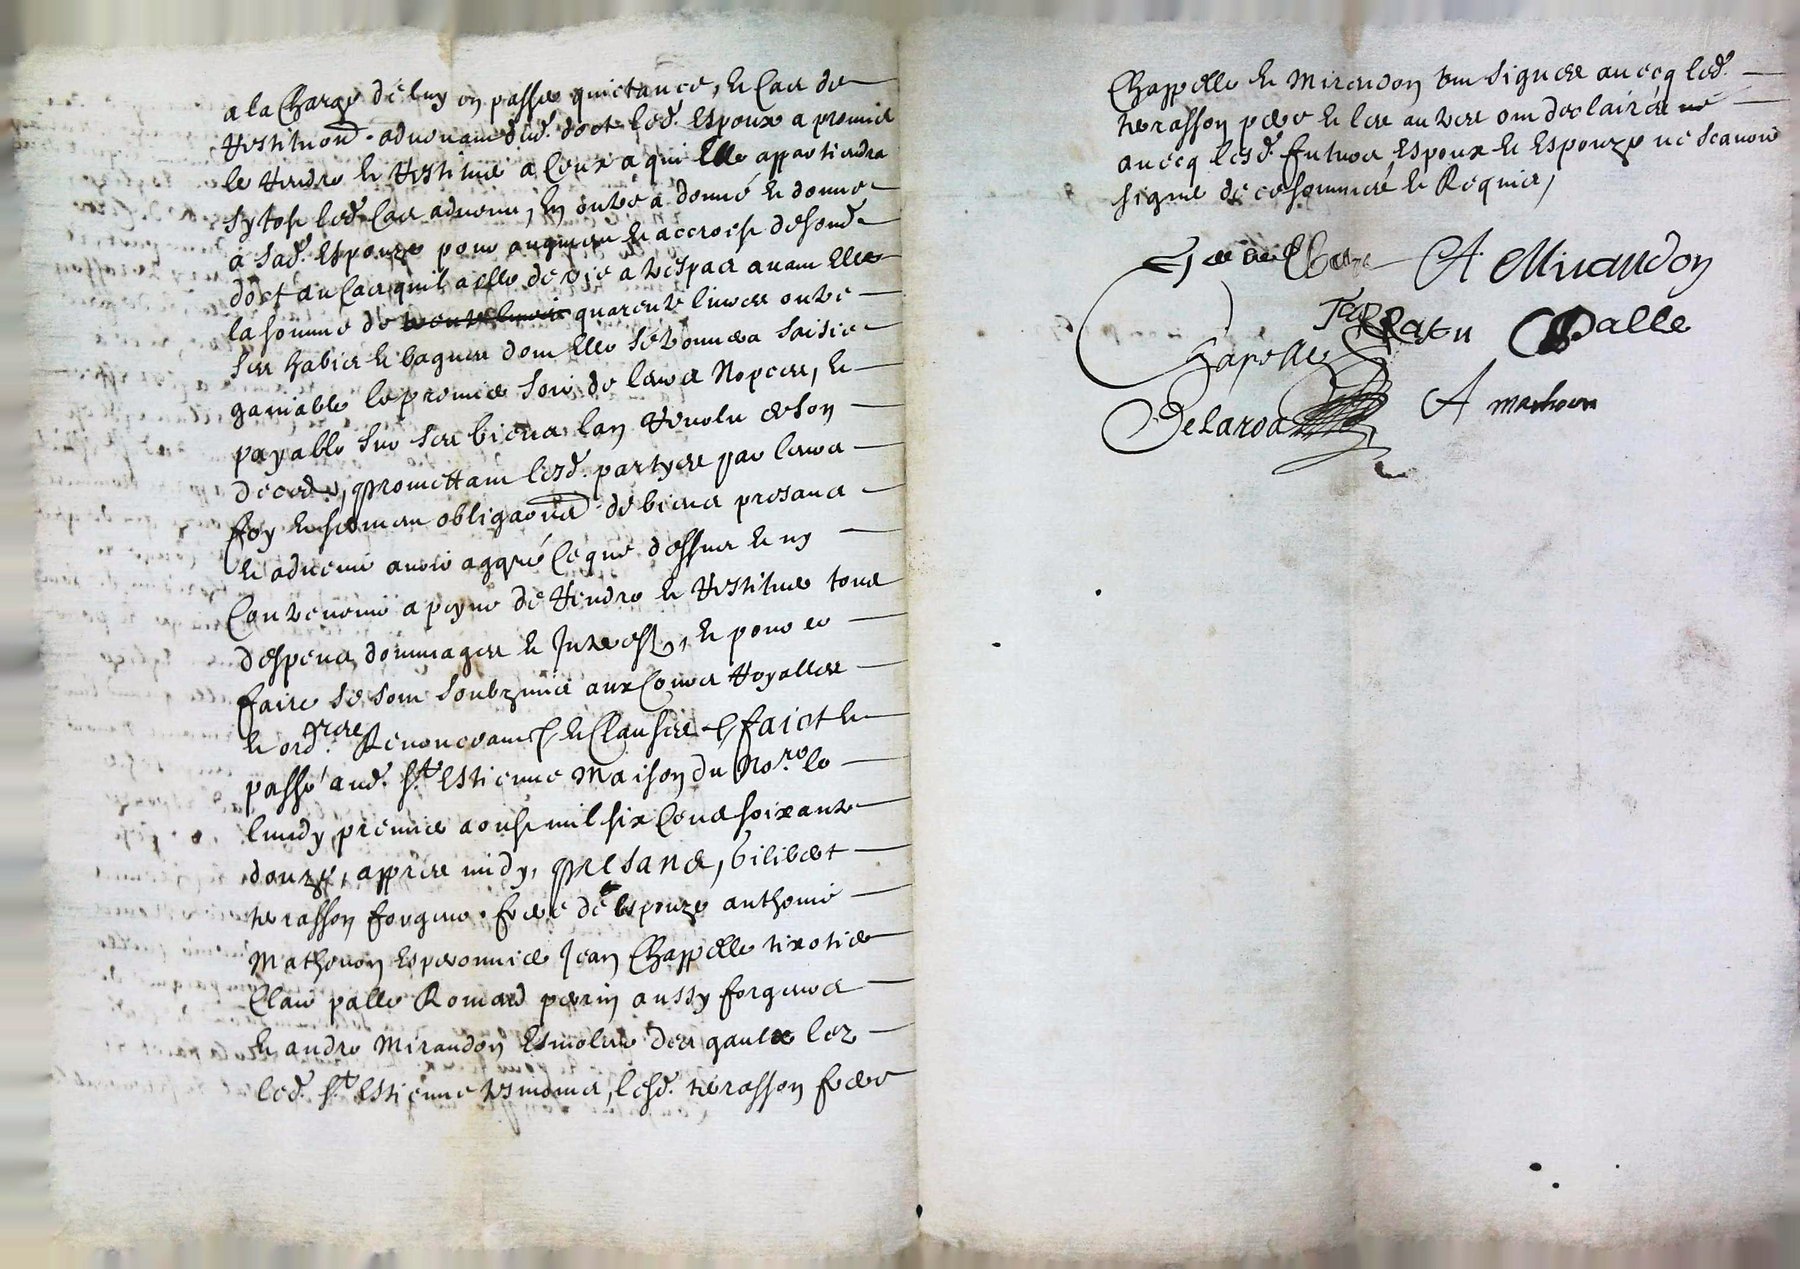 a la charge de luy en passer quictance, et cas de
restitution advenant dud. doct led. espoux a promis
le rendre et restituer a ceux a qui elle appartiendra
sy tost led. cas advenu, en outre a donné et donne
a sad. espouze pour augment et accroist de sond.
doct au cas quil aille de vie a trespas avant elle
la somme de quarente livres outre
ses habis et bagues dont elle se trouvera saisie
ganiable le premier soir de leurs nopces, et
payable sur ses biens lan revolu de son
deceds, promettant lesd. partyes par leurs
foy et serment obligaōns de biens presans
et advenir avoir aggréé ce que dessus et ny
contrevenir a peyne de rendre et restituer tous
despens, dommages et interest, et pour ce
faire se sont soubzmis aux cours royalles
et ord.res Renonceant et clauses faict et
passé aud. St Estienne maison du no.re le
lundy premier aoust mil six cens soixante
douze, appres midy, presans,
terasson forgeur frere de lespouze anthoine
Mathevon esperonnier Jean Chappelle tixotier
Claude palle Romand perin aussy forgeurs
et andre Mirandon esmoleur des gaulx lez
led. St Estienne tesmoins, lesd. terasson frere
Chappelle et Mirandon ont signes avecq led.
terasson pere et les autres ont desclairés ne
avecq lesd. futurs espoux et espouze ne scavoir
signer de ce sommés et Requis,
A Mirandon
TaRRason Palle
Chapelle
Delaroa A mathevon